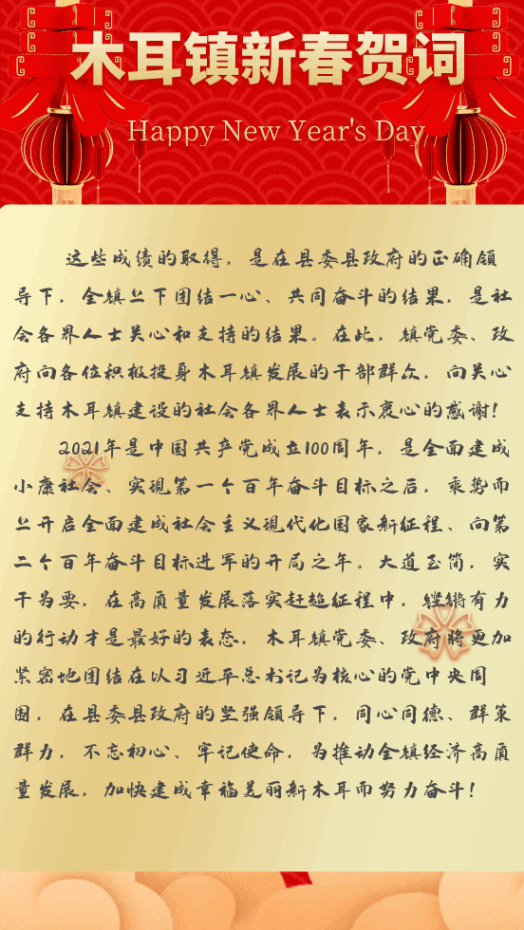 木耳镇新春贺词
Happy New Year's Day
这些成绩的取得，是在县委县政府的正确领
导下，全镇上下团结一心、共同奋斗的结果，是社
会各界人士关心和支持的结果。在此，镇党委、政
府向各位积极投身木耳镇发展的干部群众，向关心
支持木耳镇建设的社会各界人士表示衷心的感谢！
2021年是中国共产党成立100周年，是全面建成
小康社会、实现第一个百年奋斗目标之后，乘势而
上开启全面建成社会主义现代化国家新征程、向第
二个百年奋斗目标进军的开局之年。大道至简，实
干为要，在高质量发展落实赶超征程中，铿锵有力
的行动才是最好的表态，木耳镇党委、政府将更加
紧密地团结在以习近平总书记为核心的党中央周
围，在县委县政府的坚强领导下，同心同德、群策
群力，不忘初心、牢记使命，为推动全镇经济高质
量发展，加快建成幸福美丽新木耳而努力奋斗！